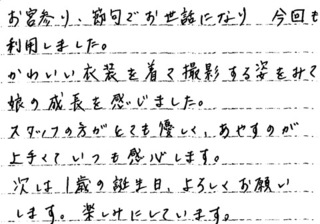 お宮参り、節句でお世話になり 今回も
利用しました。
かわいい衣装を着て撮影する姿をみて
娘の成長を感じました。
スタッフの方がとても優しく、あやすのが
上手くていつも感心します。
次は1歳の誕生日、よろしくお願い
します。楽しみにしています。